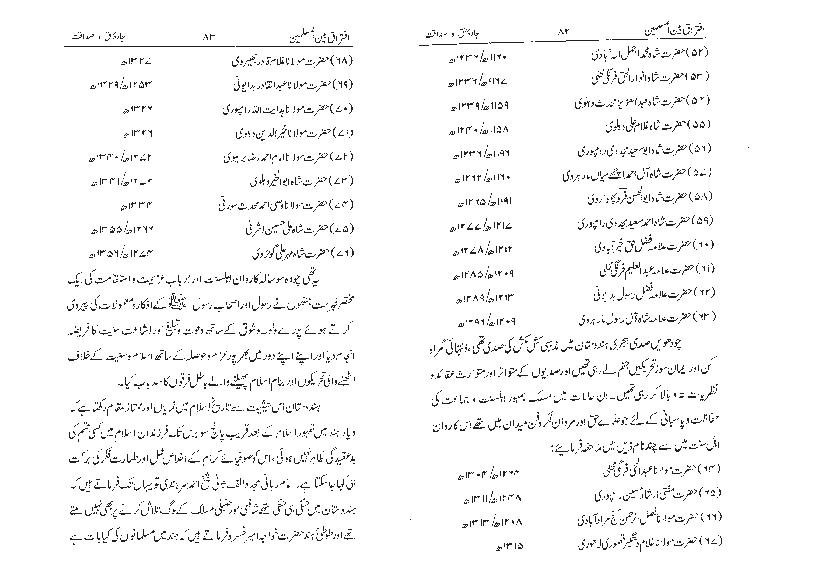 افتراق بین المسلمین ۸۲ جادۂ حق و صداقت
(۵۲) حضرت شاہ محمد اجمل الہ آبادی ۱۱۶۰ھ/۱۲۳۶ھ
(۵۳) حضرت شاہ انوار الحق فرنگی محلی ۱۱۶۷ھ/۱۲۳۶ھ
(۵۴) حضرت شاہ عبدالعزیز محدث دہلوی ۱۱۵۹ھ/۱۲۳۹ھ
(۵۵) حضرت شاہ غلام علی دہلوی ۱۱۵۸ھ/۱۲۴۰ھ
(۵۶) حضرت شاہ ابوسعید مجددی رامپوری ۱۱۹۶ھ/
(۵۷) حضرت شاہ آل احمد اچھے میاں مارہروی ۱۱۶۰ھ/
(۵۸) حضرت شاہ ابوالحسن فرد پھلواروی ۱۱۹۱ھ/۱۲۶۵ھ
(۵۹) حضرت شاہ احمد سعید مجددی رامپوری ۱۲۱۷ھ/۱۲۷۷ھ
(۶۰) حضرت علامہ فضل حق خیرآبادی ۱۲۱۲ھ/۱۲۷۸ھ
(۶۱) حضرت علامہ عبدالعلیم فرنگی محلی ۱۲۰۹ھ/۱۲۸۵ھ
(۶۲) حضرت علامہ فضل رسول بدایونی ۱۲۱۳ھ/۱۲۸۹ھ
(۶۳) حضرت علامہ شاہ آل رسول مارہروی ۱۲۰۹ھ/۱۲۹۶ھ
چودھویں صدی ہجری ہندوستان میں مذہبی کش مکش کی صدی تھی، انتہائی گمراہ
کن اور ایمان سوز تحریکیں جنم لے رہی تھیں اور صدیوں کے متواتر اور متوارث عقائد و
نظریات تہ و بالا کر رہی تھیں۔ ان حالات میں مسلک جمہور اہلسنت و جماعت کی
حفاظت و پاسبانی کے لئے جو علمائے حق اور مردان فکر و فن میدان میں تھے اس کاروان
اہل سنت میں سے چند نام ذیل میں ملاحظہ فرمائیے:
(۶۴) حضرت مولانا عبدالحی فرنگی محلی ۱۲۶۴ھ/۱۳۰۴ھ
(۶۵) حضرت مفتی ارشاد حسین رامپوری ۱۲۴۸ھ/۱۳۱۱ھ
(۶۶) حضرت مولانا فضل الرحمن گنج مرادآبادی ۱۲۰۸ھ/۱۳۱۳ھ
(۶۷) حضرت مولانا غلام دستگیر قصوری لاہوری ۱۳۱۵ھ
افتراق بین المسلمین ۸۳ جادۂ حق و صداقت
(۶۸) حضرت مولانا غلام قادر بھیروی ۱۳۲۷ھ
(۶۹) حضرت مولانا عبدالقادر بدایونی ۱۲۵۳ھ/
(۷۰) حضرت مولانا ہدایت اللہ رامپوری ۱۳۲۶ھ
(۷۱) حضرت مولانا خیرالدین دہلوی ۱۳۲۶ھ
(۷۲) حضرت مولانا امام احمد رضا بریلوی ۱۲۷۲ھ/۱۳۴۰ھ
(۷۳) حضرت شاہ ابوالخیر دہلوی ۱۳۴۱ھ
(۷۴) حضرت مولانا وصی احمد محدث سورتی ۱۳۳۴ھ
(۷۵) حضرت شاہ علی حسین اشرفی ۱۲۶۶ھ/۱۳۵۵ھ
(۷۶) حضرت شاہ مہر علی گولڑوی ۱۲۷۴ھ/۱۳۵۶ھ
یہ تھی چودہ سو سالہ کاروان اہلسنت اور ارباب عزیمت و استقامت کی ایک
مختصر فہرست جنھوں نے رسول اور اصحاب رسول ﷺ کے افکار و معمولات کی پیروی
کرتے ہوئے پورے ولولہ و شوق کے ساتھ دعوت و تبلیغ اور اشاعت سنیت کا فریضہ
انجام دیا اور اپنے اپنے دور میں بھرپور عزم و حوصلہ کے ساتھ اسلام و سنیت کے خلاف
اٹھنے والی تحریکوں اور بنام اسلام پھیلنے والے باطل فرقوں کا سدباب کیا۔
ہندوستان اس حیثیت سے تاریخ اسلام میں نمایاں اور ممتاز مقام رکھتا ہے کہ
دیار ہند میں ظہور اسلام کے بعد قریب پانچ سو برس تک فرزندان اسلام میں کسی قسم کی
بدعقیدگی ظاہر نہیں ہوئی، اس کو صوفیائے کرام کے اخلاص عمل اور طہارت فکر کی برکت
ہی کہا جا سکتا ہے۔ امام ربانی مجدد الف ثانی شیخ احمد سرہندی تو یہاں تک فرماتے ہیں کہ
ہندوستان میں حنفی ہی حنفی تھے شافعی اور حنبلی مسلک کے لوگ تلاش کرنے پر بھی نہیں ملتے
تھے اور طوطی ہند حضرت خواجہ امیر خسرو فرماتے ہیں کہ ہند میں مسلمانوں کی کیا بات ہے